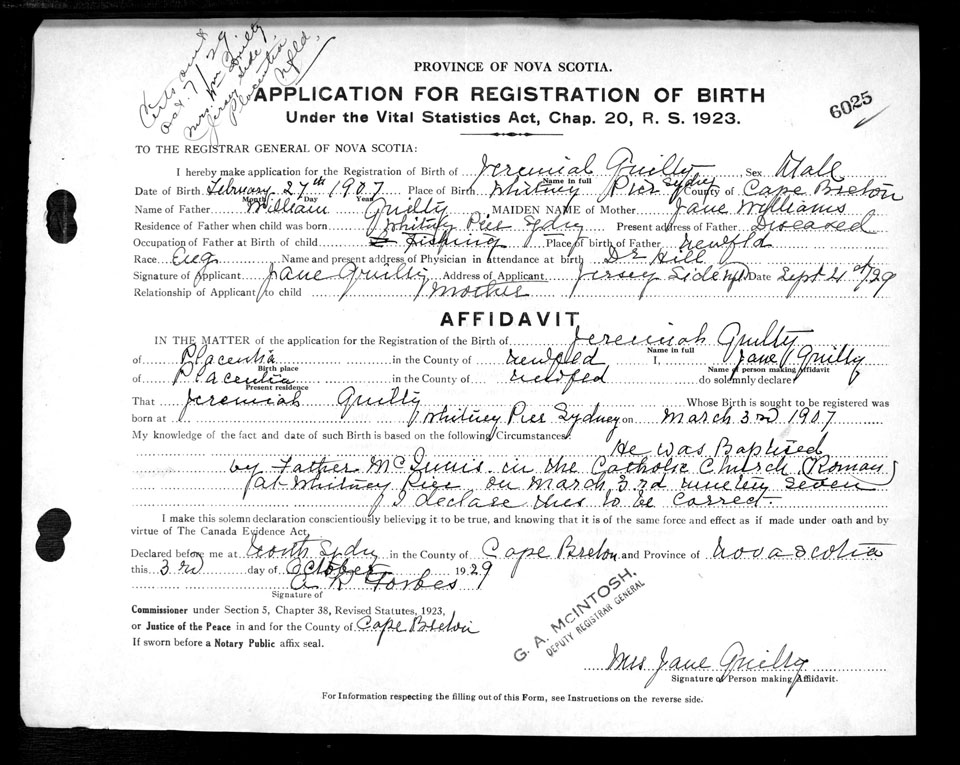 Certs sent
Oct. 7/29
Mrs. Wm Guilty
Jersey Side,
Placentia
Nfld.
PROVINCE OF NOVA SCOTIA.
APPLICATION FOR REGISTRATION OF BIRTH
Under the Vital Statistics Act, Chap. 20, R. S. 1923.
6025
TO THE REGISTRAR GENERAL OF NOVA SCOTIA:
I hereby make application for the Registration of Birth of Jeremiah Guilty Sex Male
Name in full
Date of Birth February 27th 1907 Place of Birth Whitney Pier Sydney County of Cape Breton
Month Day Year
Name of Father William Guilty MAIDEN NAME of Mother Jane Williams
Residence of Father when child was born Whitney Pier Sydny Present address of Father Diseased
Occupation of Father at Birth of child Fishing Place of birth of Father Newfld
Race Eng Name and present address of Physician in attendance at birth Dr Hill
Signature of Applicant Jane Guilty Address of Applicant Jersey Side Nfd Date Sept 21st/29
Relationship of Applicant to child Mother
AFFIDAVIT
IN THE MATTER of the application for the Registration of the Birth of Jeremiah Guilty
Name in full
of Placentia in the County of Newfled I, Jane Guilty
Birth place Name of person making Affidavit
of Placentia in the County of Newfed do solemnly declare
Present residence
That Jeremiah Guilty Whose Birth is sought to be registered was
born at Whitney Pier Sydney on March 3rd 1907
My knowledge of the fact and date of such Birth is based on the following Circumstances:
He was Baptised
by Father McInnis in the Catholic Church (Roman)
at Whitney Pire on March 3rd ninety seven
I declare this to be correct.
I make this solemn declaration conscientiously believing it to be true, and knowing that it is of the same force and effect as if made under oath and by
virtue of The Canada Evidence Act.
Declared before me at North Sydny in the County of Cape Breton and Province of Nova Scotia
this 3rd day of October 1929
A R Forbes
Signature of
Commissioner under Section 5, Chapter 38, Revised Statutes, 1923,
or Justice of the Peace in and for the County of Cape Breton
If sworn before a Notary Public affix seal.
G. A. McINTOSH,
DEPUTY REGISTRAR GENERAL
Mrs Jane Guilty
Signature of Person making Affidavit.
For Information respecting the filling out of this Form, see Instructions on the reverse side.